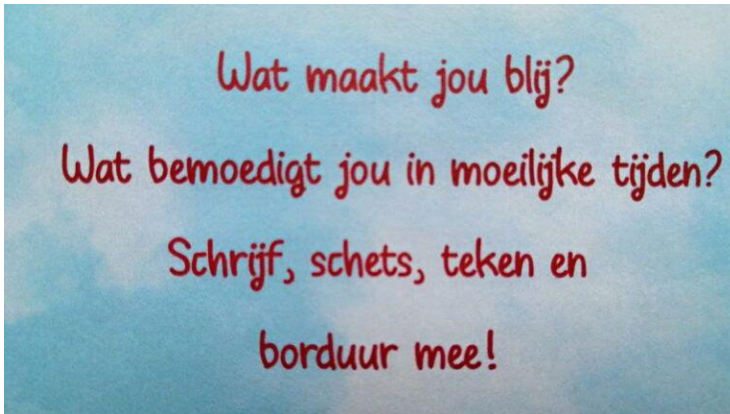 Wat maakt jou blij?
Wat bemoedigt jou in moeilijke tijden?
Schrijf, schets, teken en
borduur mee!